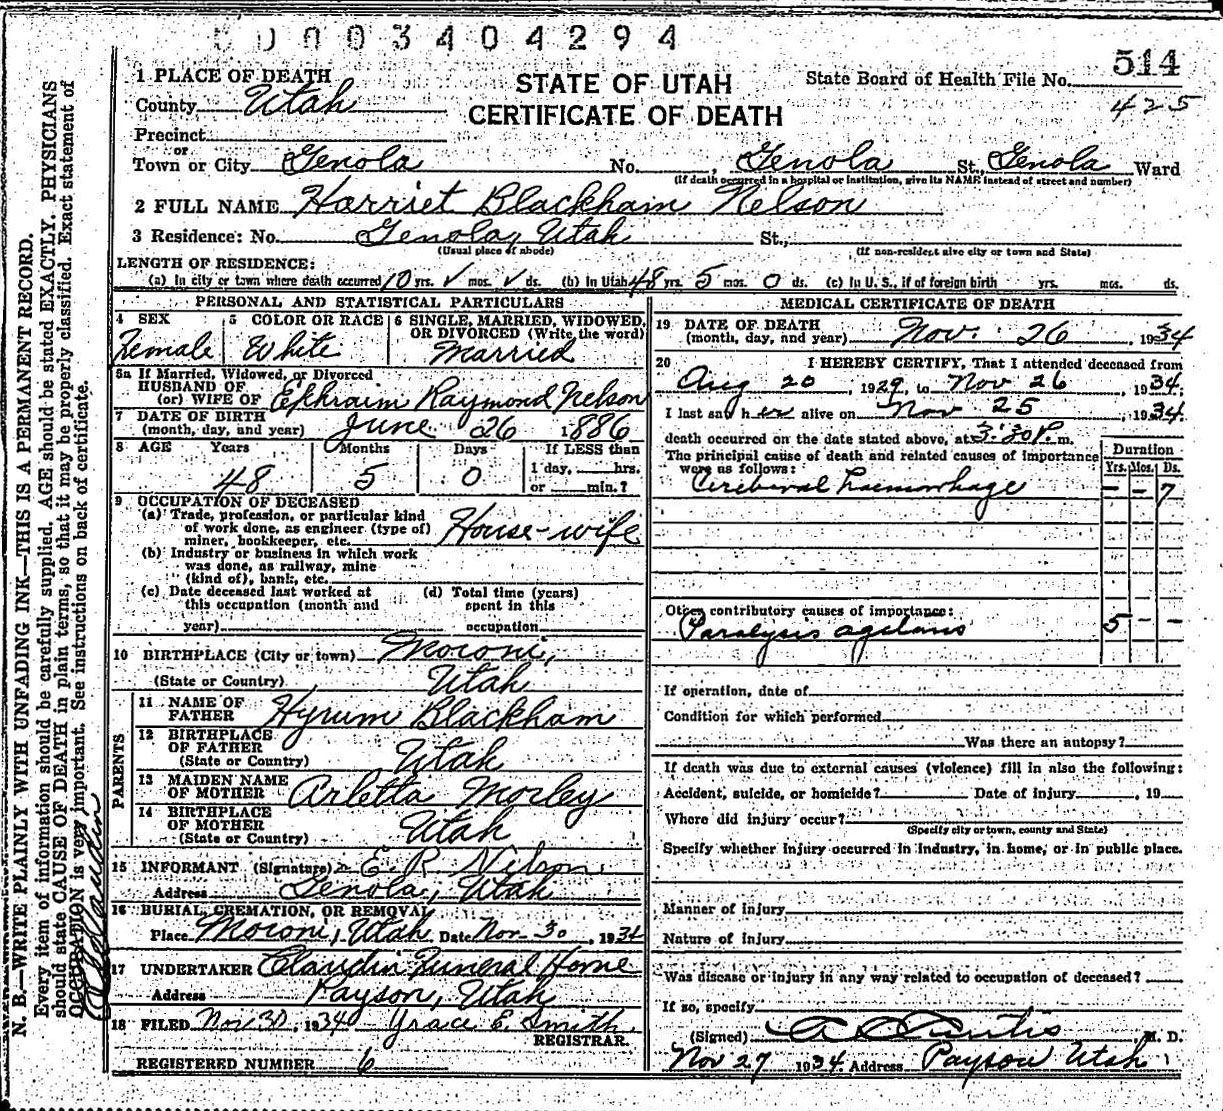 0003404294
514
1 PLACE OF DEATH
STATE OF UTAH
State Board of Health File No.
County Utah
CERTIFICATE OF DEATH
425
Precinct
or
Town or City Genola No. , Genola St., Genola Ward
(If death occurred in a hospital or institution, give its NAME instead of street and number)
2 FULL NAME Harriet Blackham Nelson
3 Residence: No. Genola, Utah St.,
(Usual place of abode) (If non-resident give city or town and State)
LENGTH OF RESIDENCE:
(a) In city or town where death occurred 10 yrs. ✓ mos. ✓ ds. (b) In Utah 48 yrs. 5 mos. 0 ds. (c) In U. S., if of foreign birth yrs. mos. ds.
PERSONAL AND STATISTICAL PARTICULARS
4 SEX
Female
5 COLOR OR RACE
White
6 SINGLE, MARRIED, WIDOWED,
OR DIVORCED (Write the word)
Married
6a If Married, Widowed, or Divorced
HUSBAND OF
(or) WIFE OF Ephraim Raymond Nelson
7 DATE OF BIRTH
(month, day, and year) June 26 1886
8 AGE Years Months Days If LESS than
48 5 0 1 day, hrs.
or min.?
9 OCCUPATION OF DECEASED
(a) Trade, profession, or particular kind
of work done, as engineer (type of)
miner, bookkeeper, etc. House-wife
(b) Industry or business in which work
was done, as railway, mine
(kind of), bank, etc.
(c) Date deceased last worked at
this occupation (month and
year)
(d) Total time (years)
spent in this
occupation
10 BIRTHPLACE (City or town) Moroni,
(State or Country) Utah
PARENTS
11 NAME OF
FATHER Hyrum Blackham
12 BIRTHPLACE
OF FATHER
(State or Country) Utah
13 MAIDEN NAME
OF MOTHER Arletta Morley
14 BIRTHPLACE
OF MOTHER
(State or Country) Utah
15 INFORMANT (Signature) E. R. Nelson
Address Genola, Utah
16 BURIAL, CREMATION, OR REMOVAL
Place Moroni, Utah Date Nov 30, 1934
17 UNDERTAKER Claudin Funeral Home
Address Payson, Utah
18 FILED Nov 30, 1934 Grace E. Smith
REGISTRAR.
REGISTERED NUMBER 6
MEDICAL CERTIFICATE OF DEATH
19 DATE OF DEATH
(month, day, and year) Nov. 26, 1934
20 I HEREBY CERTIFY, That I attended deceased from
Aug 20, 1929, to Nov 26, 1934.
I last saw her alive on Nov 25, 1934.
death occurred on the date stated above, at 3:30 P. m.
The principal cause of death and related causes of importance
were as follows:
Duration
Yrs. Mos. Ds.
Cerebral haemorhage - - 7
Other contributory causes of importance:
Paralysis agitans 5 - -
If operation, date of
Condition for which performed
Was there an autopsy?
If death was due to external causes (violence) fill in also the following:
Accident, suicide, or homicide? Date of injury , 19
Where did injury occur?
(Specify city or town, county and State)
Specify whether injury occurred in industry, in home, or in public place.
Manner of injury
Nature of injury
Was disease or injury in any way related to occupation of deceased?
If so, specify
(Signed) A C Curtis, M. D.
Nov 27 1934. Address Payson Utah
N. B.—WRITE PLAINLY WITH UNFADING INK—THIS IS A PERMANENT RECORD.
Every item of information should be carefully supplied. AGE should be stated EXACTLY. PHYSICIANS
should state CAUSE OF DEATH in plain terms, so that it may be properly classified. Exact statement of
OCCUPATION is very important. See instructions on back of certificate.